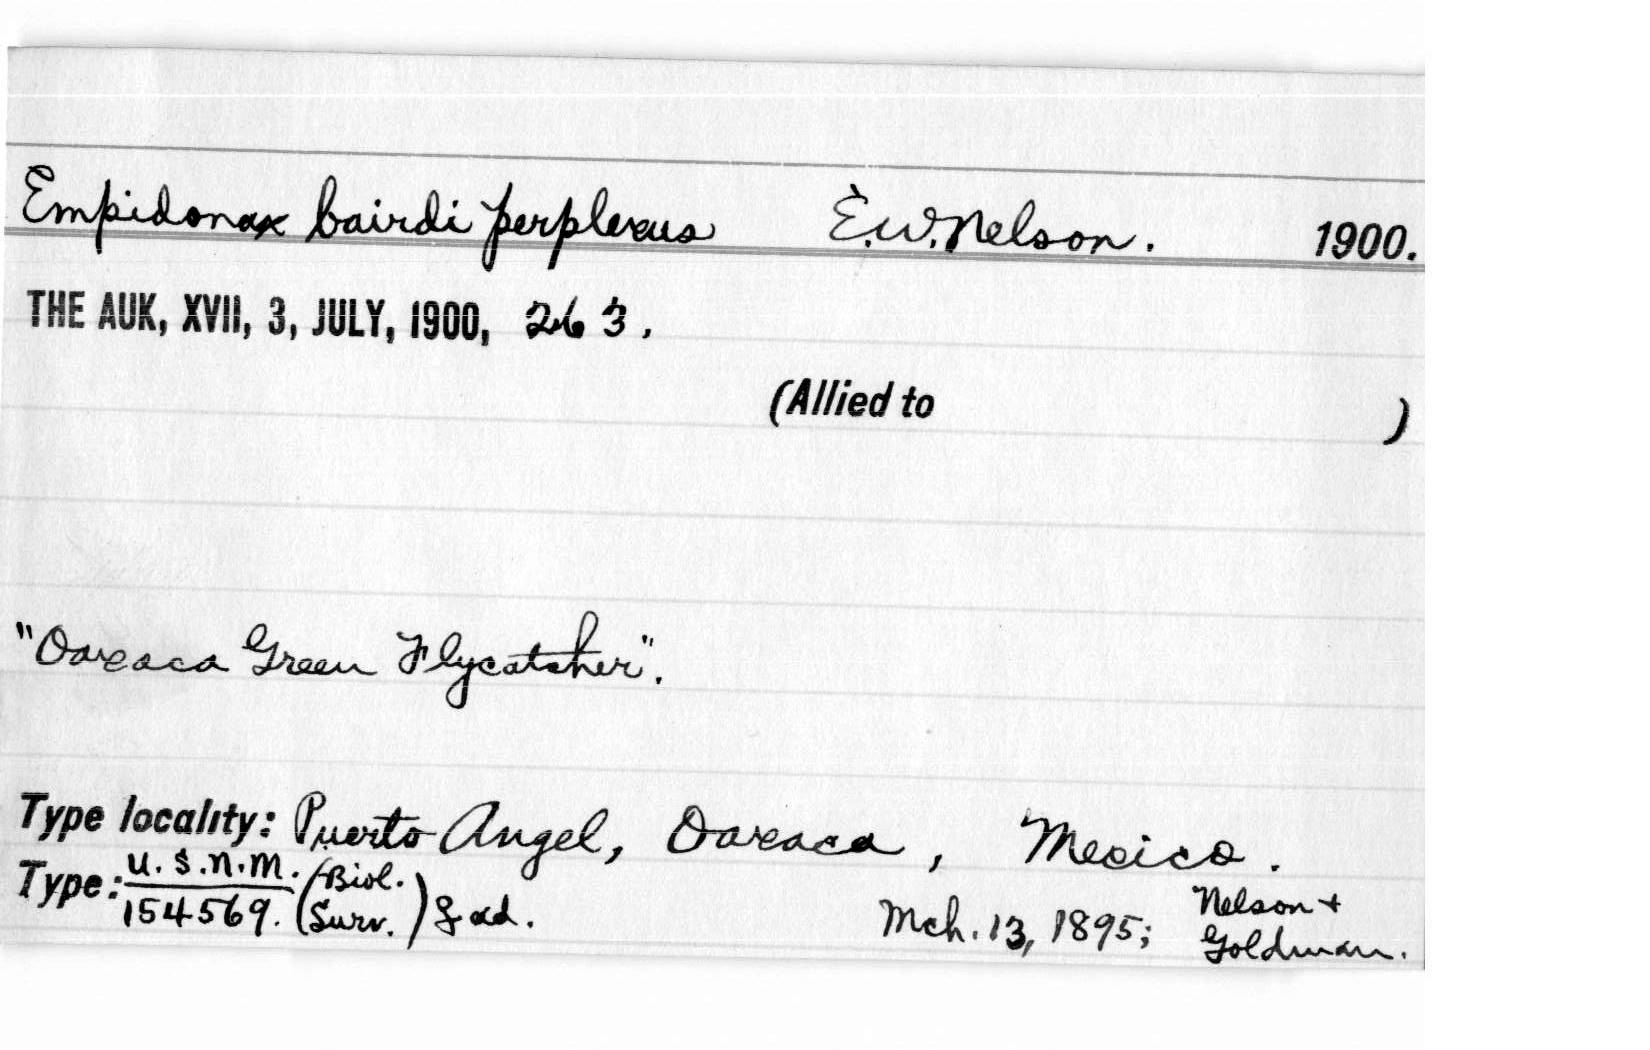 Empidonax bairdi perplexus E.W. Nelson. 1900.
THE AUK, XVII, 3, JULY, 1900, 263.
(Allied to )
"Oaxaca Green Flycatcher".
Type locality: Puerto Angel, Oaxaca, Mexico.
Type: U.S.N.M. 154569. (Biol. Surv.) ♀ ad. Mch. 13, 1895; Nelson + Goldman.